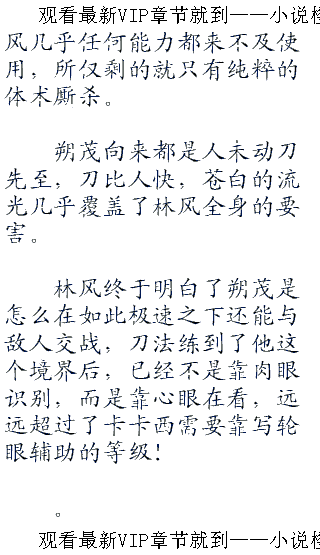 观看最新VIP章节就到——小说
风几乎任何能力都来不及使
用，所仅剩的就只有纯粹的
体术厮杀。
朔茂向来都是人未动刀
先至，刀比人快，苍白的流
光几乎覆盖了林风全身的要
害。
林风终于明白了朔茂是
怎么在如此极速之下还能与
敌人交战，刀法练到了他这
个境界后，已经不是靠肉眼
识别，而是靠心眼在看，远
远超过了卡卡西需要靠写轮
眼辅助的等级！
。
观看最新VIP章节就到——小说